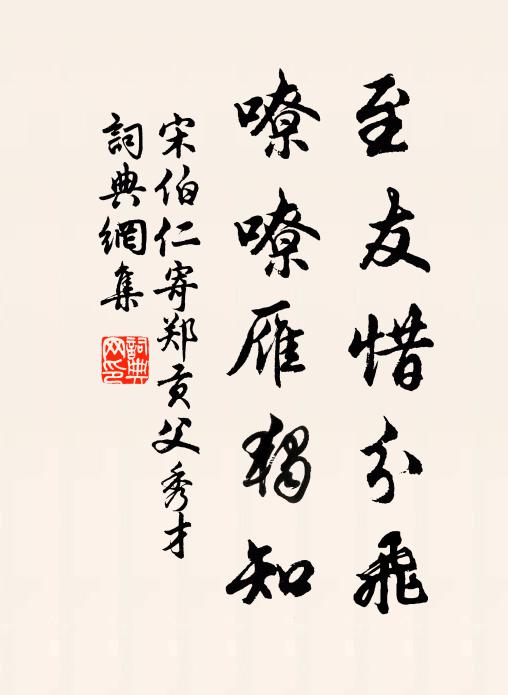 至友惜分飛
嘹嘹雁獨知
宋伯仁寄郑贡父秀才
詞典網集
詞典网印